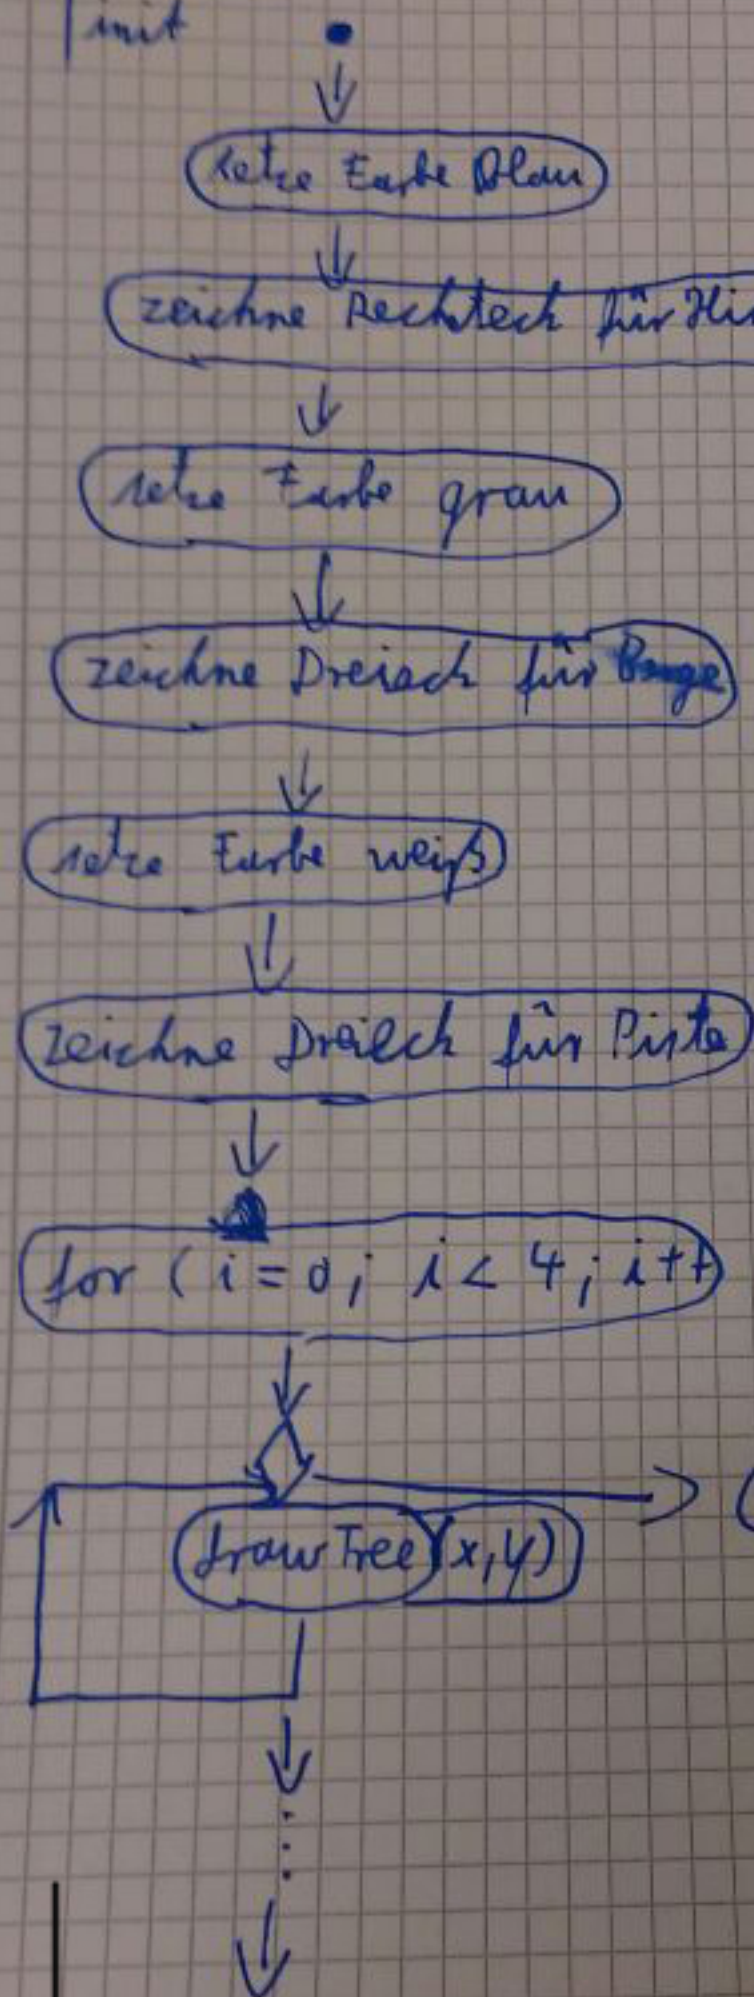 init
setze Farbe Blau
zeichne Rechteck für Hi
setze Farbe grau
zeichne Dreieck für Berge
setze Farbe weiß
zeichne Dreieck für Piste
for ( i = 0; i < 4; i++)
drawTree(x,y)